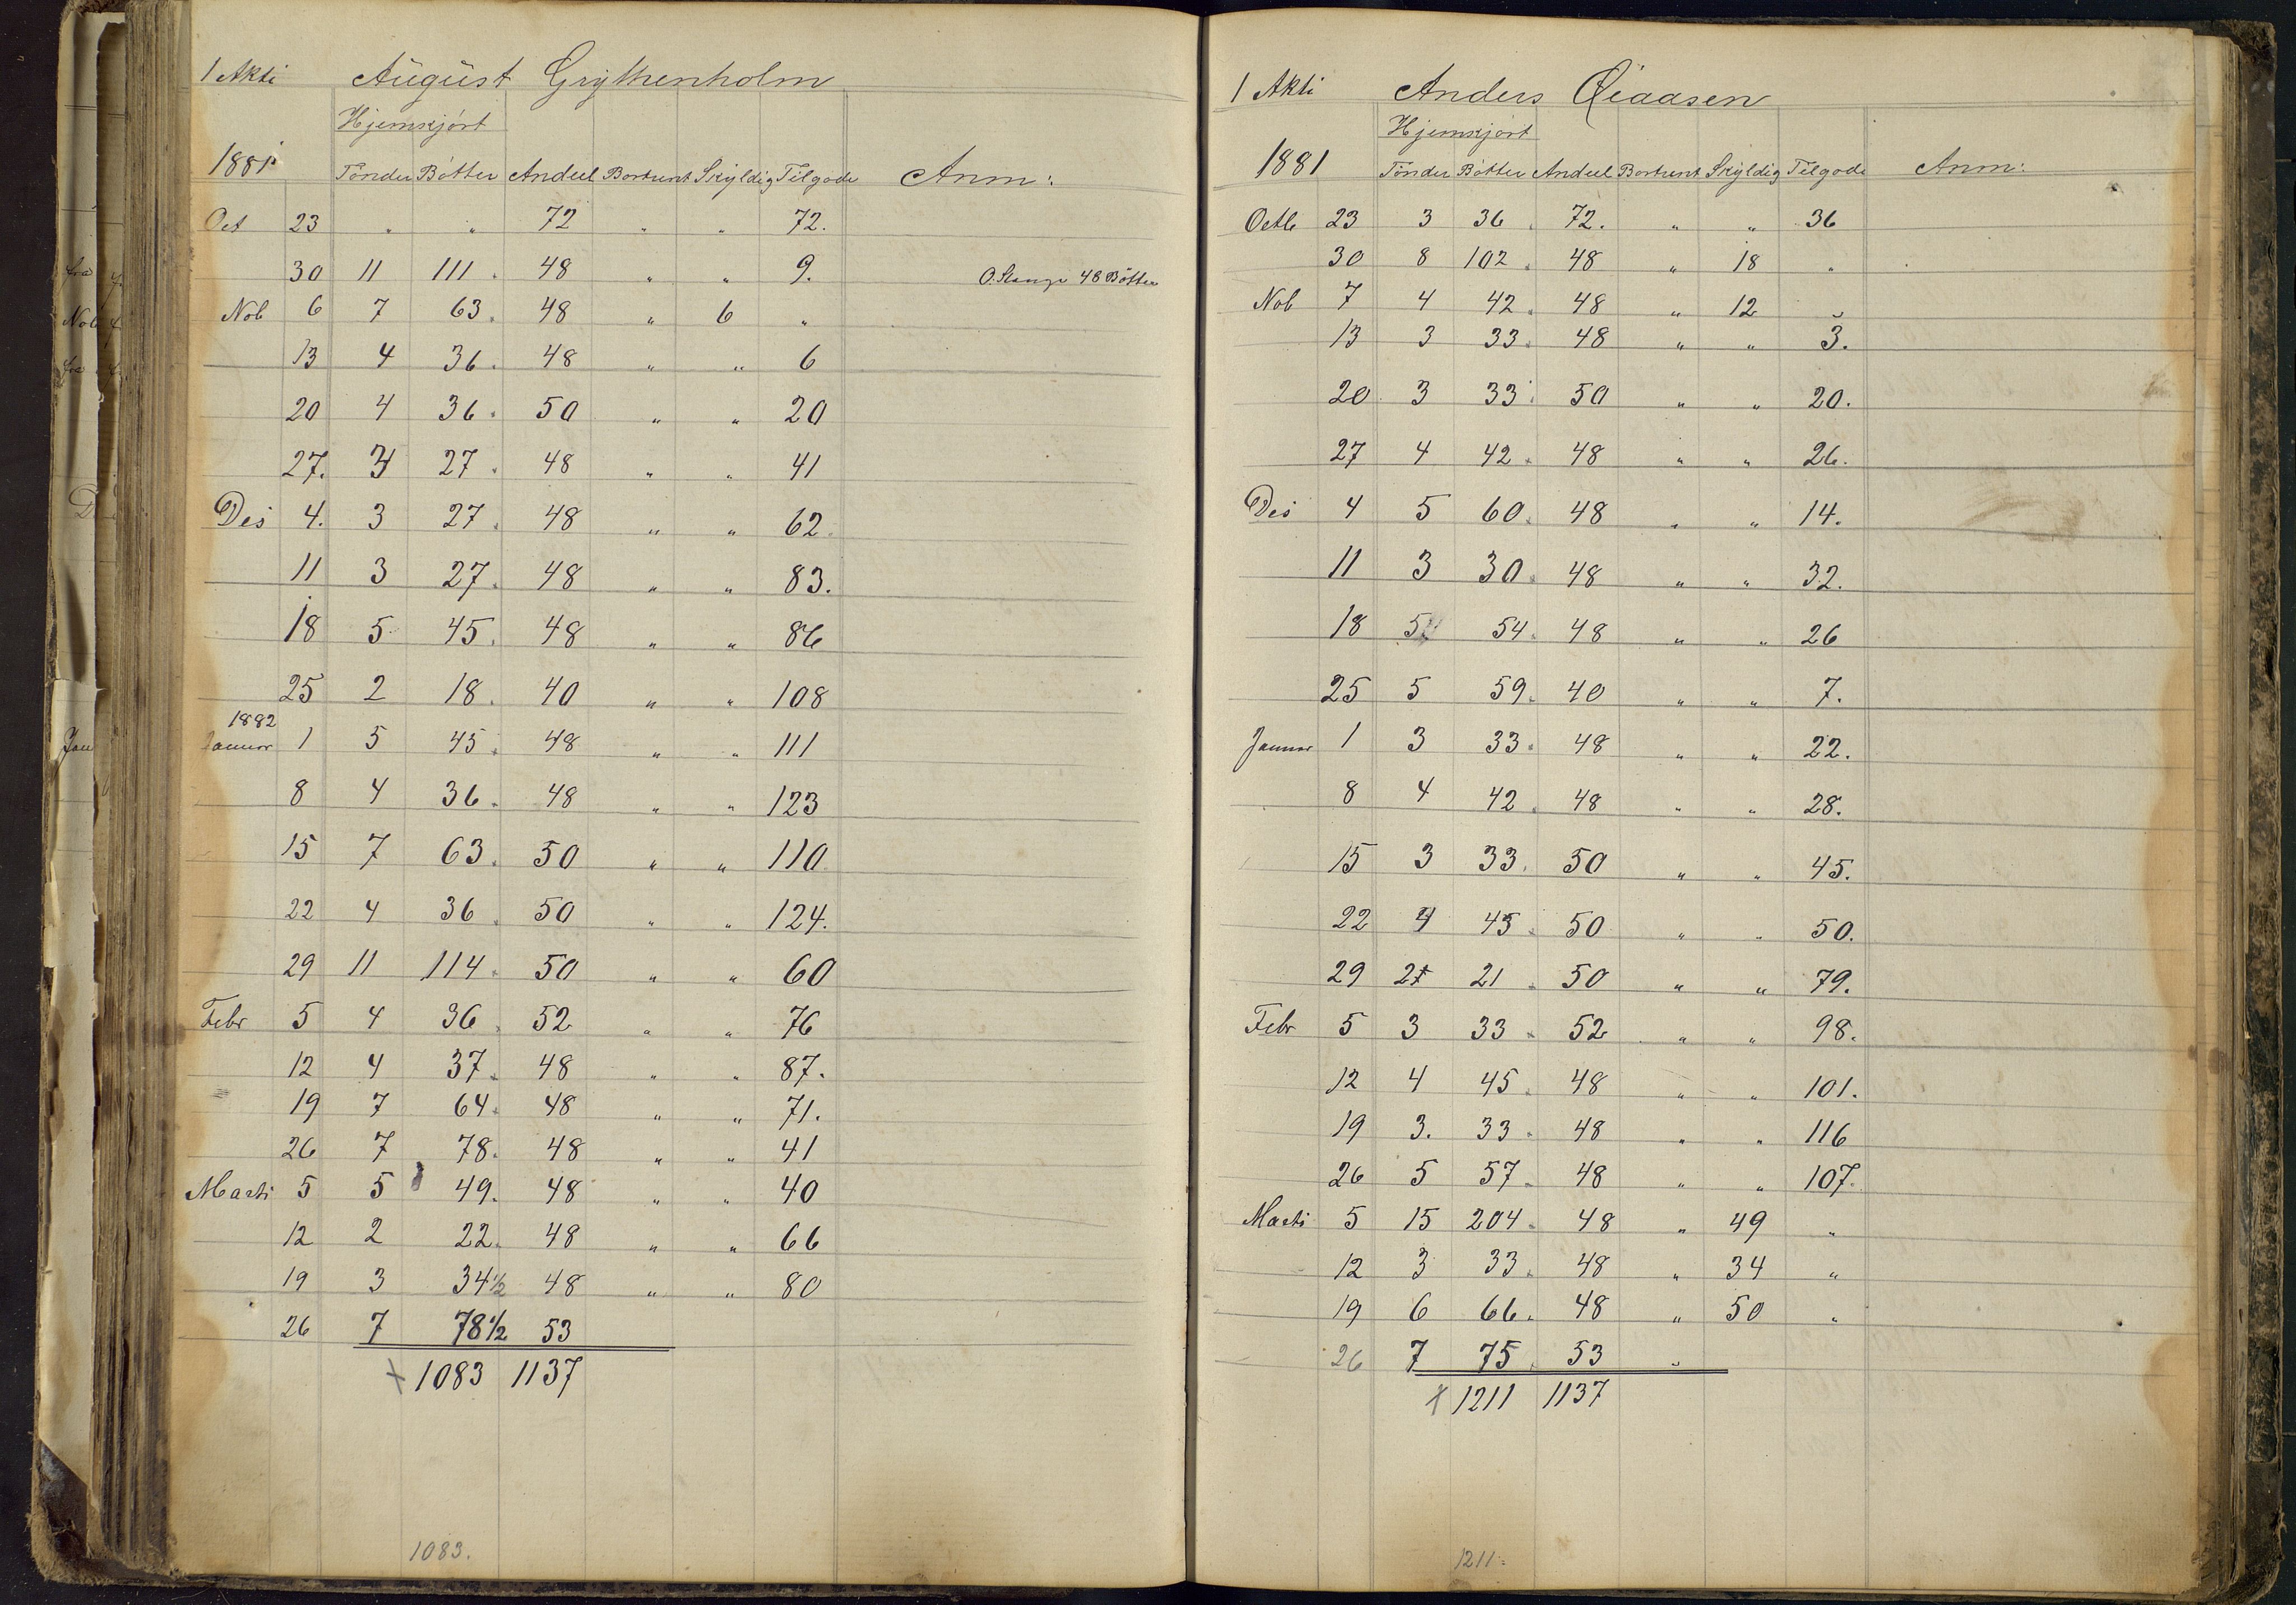 1 Akti August Grythenholm
Hjemkjört
1881 Tönder Bötter Andeel Bortent Skyldig Tilgode Anm:
Oct 23 " " 72 " " 72.
30 11 111. 48 " " 9. O. Stange 48 Bötter
Nob 6 7 63. 48 " 6 "
13 4 36. 48 " " 6
20 4 36. 50 " " 20
27. 3 27. 48 " " 41
Des 4. 3 27. 48 " " 62.
11 3 27. 48 " " 83.
18 5 45. 48 " " 86
25 2 18. 40 " " 108
1882
Januar 1 5 45. 48 " " 111
8 4 36. 48 " " 123
15 7 63. 50 " " 110.
22 4 36. 50 " " 124.
29 11 114. 50 " " 60
Febr 5 4 36. 52 " " 76
12 4 37. 48 " " 87.
19 7 64. 48 " " 71.
26 7 78. 48 " " 41
Marti 5 5 49. 48 " " 40
12 2 22. 48 " " 66
19 3 34½ 48 " " 80
26 7 78½ 53
x 1083 1137
1083.
1 Akti Anders Qiaasen
Hjemkjört
1881 Tönder Bötter Andeel Bortent Skyldig Tilgode Anm:
Octb 23 3 36. 72. " " 36
30 8 102. 48 " 18 "
Nob 7 4 42. 48 " 12 "
13 3 33. 48 " " 3.
20 3 33. 50 " " 20.
27 4 42. 48 " " 26.
Des 4 5 60. 48 " " 14.
11 3 30. 48 " " 32.
18 5 54. 48 " " 26
25 5 59. 40 " " 7.
Januar 1 3 33. 48 " " 22.
8 4 42. 48 " " 28.
15 3 33. 50 " " 45.
22 4 45. 50 " " 50.
29 2 21. 50 " " 79.
Febr 5 3 33. 52 " " 98.
12 4 45. 48 " " 101.
19 3. 33. 48 " " 116
26 5 57. 48 " " 107.
Marti 5 15 204. 48 " 49 "
12 3 33. 48 " 34 "
19 6 66. 48 " 50 "
26 7 75. 53 "
x 1211 1137
1211.